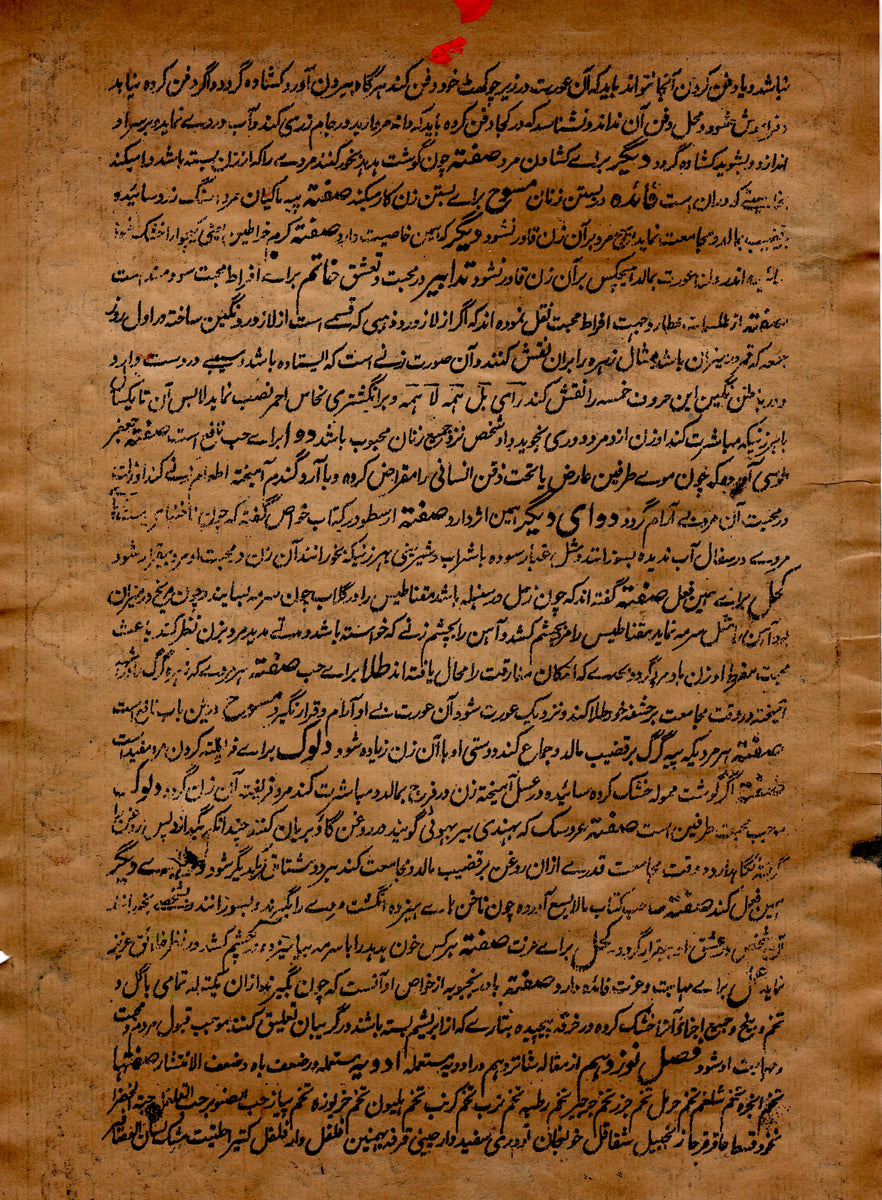 نباشد و یا دفن کردن آنجا نتواند باید که آن عورت در زیر چوکھٹ خود دفن کند هر گاه بیرون آورد کشاده گردد و اگر دفن کرده نیابد
فراموش شود و محل دفن آن نداند و نشناسد که در کجا دفن کرده باید که دانه مروارید در جام زری کند و آب در وے نماید و بر سر او
اندازد و بشوید کشاده گردد دیگر براے کشادن مرد صفته چون گوشت هدهد بخور کنند مردے را که از زن بسته باشد وا میکند
است فائده در بستن زنان مسوح براے بستن زن کار میکند صفته پیه ماکیان سائیده
بقضیب بمالد و مجامعت نماید هیچ مرد بر آن زن قادر نشود دیگر که همین خاصیت دارد صفته کرم خراطین خشک
بمالد هیچکس بر آن زن قادر نشود تدابیر در محبت و تعشق خاتم براے افراط محبت سودمند است
صفته از طلسمات عطارد جهت افراط محبت نقل نموده اند که اگر از لازورد ذهبی که قسمے است از لازورد نگین ساخته در اول روز
جمعه که قمر در میزان باشد مثال زهره را بران نقش کنند و آن صورت زنے است که ایستاده باشد و سیبے در دست دارد
و در باطن نگین این حروف خمسه را نقش کند و بر انگشتری نحاس احمر نصب نماید لابس آن تا یکسال
با هر زنیکه مباشرت کند آن زن از و مرد دوری نجوید و او شخص نزد جمیع زنان محبوب باشد دوا براے حب نافع است صفته جعفر
طوسی آورده که چون موے طرفین عارض یا تحت ذقن انسانی را مقراض کرده و با آرد گندم آمیخته اطعام زنے کند آن زن
در محبت آن مرد بے آرام گردد دوای دیگر همین اثر دارد صفته ارسطو در کتاب خواص گفته که چون ناخنهاے
مردے در سفال آب ندیده بسوزانند و مثل غبار سوده با شراب و شیرینی بهر زنیکه بخورانند آن زن در محبت او مرد بیقرار شود
کحل براے همین فعل صفته گفته اند که چون زحل در سنبله باشد مقناطیس را در گلاب چون سرمه بسایند و چون مریخ در میزان
بود آهن را مثل سرمه نماید مقناطیس را مرد بچشم کشد و آهن را بچشم زنے که خواسته باشد و مدتے مدید مرد بزن نظر کند باعث
محبت مفرط او زن با مرد گردد بحدے که امکان مفارقت را محال یافته اند طلا براے حب صفته هر مردے که زهره گرگ
آمیخته در وقت مجامعت بر حشفه خود طلا کند و نزدیک عورت شود آن عورت بے او آرام و قرار نگیرد مسوح درین باب نافع است
صفته هر مردیکه پیه گرگ بر قضیب مالد و جماع کند دوستی او با آن زن زیاده شود دلوک براے فریفته کردن مرد مفید است
صفته اگر گوشت ممولہ خشک کرده سائیده در عسل آمیخته زن در فرج بمالد و مباشرت کند مرد فریفته آن زن گردد دلوک
موجب محبت طرفین است صفته عروسک که بهندی بیر بهوٹی گویند در روغن گاؤ بریان کنند چندانکه بگدازد پس روغن را
گرفته نگاهدارد وقت مجامعت قدرے از ان روغن بر قضیب مالد و مجامعت کند هر دو مشتاق یکدیگر شود دیگر
همین فعل کند صفته صاحب کتاب مالا یسع آورده چون ناخن هاے هیزده انگشت مردے را بگیرند و بسوزانند و بشخصے بخورانند
آن شخص در عشق او بیقرار گردد کحل براے عزت صفته هر کس خون هدهد را با سرمه بچشم کشد در نظر خلائق عزیز
نماید براے مهابت و عزت فائده دارد صفته بادرنجبویه از خواص او آنست که چون بگیرند از ان یکتوله تمامی با گل و
تخم و بیخ و جمیع اجزائه آنرا خشک کرده در خرقه پیچیده بتارے که از ابریشم بسته باشند در گریبان تعلیق کنند موجب قبول مردم و محبت
و مهابت او شود فصل نوزدهم از مقاله شانزدهم در ادویه مستعمله ادویه مستعمله در ضعف باه و ضعف الانتشار صفتها
تخم انجره تخم شلغم تخم حرمل تخم جزر تخم جرجیر تخم رطبه تخم ترب تخم کرنب تخم هلیون تخم خرپوزه تخم پیاز حب الصنوبر حب القلقل حبة الخضرا
نخود قسط عاقرقرحا زنجبیل شقاقل خولنجان تودری سفید دارچینی قرفه بهمنین فلفل دارفلفل کتیرا حلتیت مشک لسان العصافیر